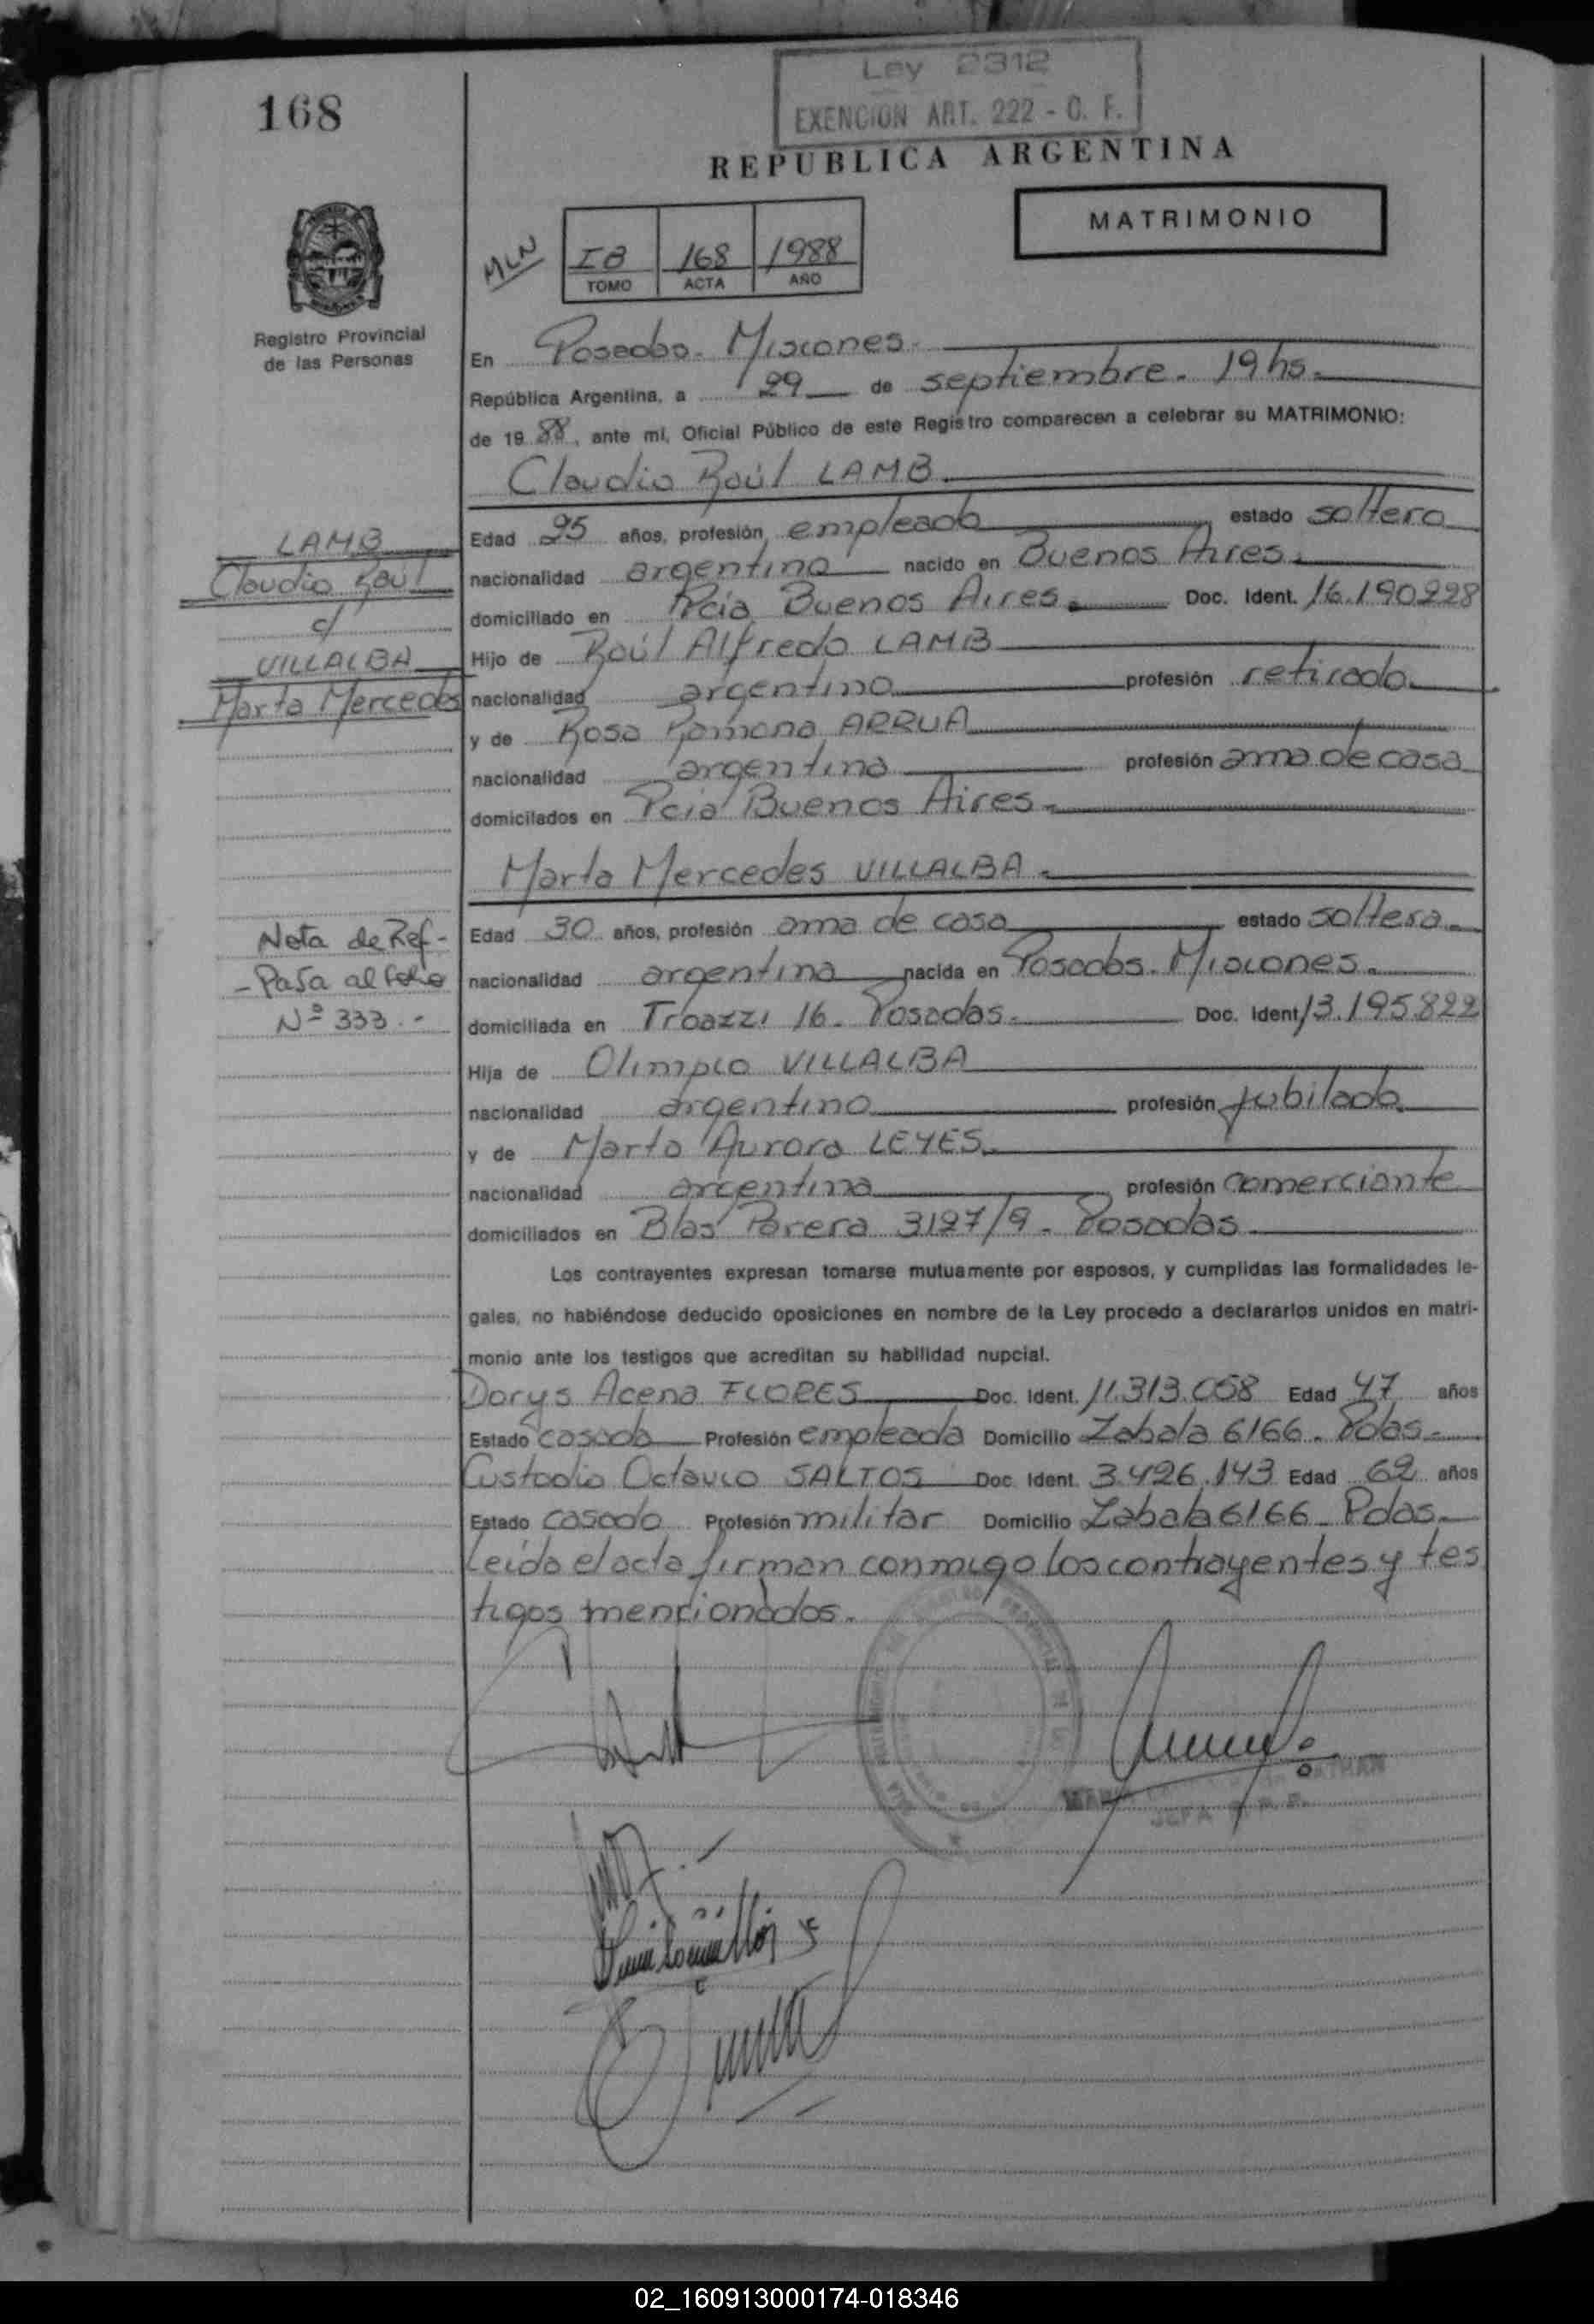 168
Ley 2312
EXENCION ART. 222 - C. F.
REPUBLICA ARGENTINA
MATRIMONIO
MLN
IB 168 1988
TOMO ACTA AÑO
Registro Provincial
de las Personas
En Posadas. Misiones.
República Argentina, a 29 de septiembre. 19 hs.
de 1988, ante mi, Oficial Público de este Registro comparecen a celebrar su MATRIMONIO:
Claudio Raúl LAMB
LAMB
Claudio Raúl
c/
VILLALBA
Marta Mercedes
Edad 25 años, profesión empleado estado soltero
nacionalidad argentino nacido en Buenos Aires.
domiciliado en Pcia Buenos Aires. Doc. Ident. 16.190228
Hijo de Raúl Alfredo LAMB
nacionalidad argentino profesión retirado.
y de Rosa Ramona ARRUA
nacionalidad argentina profesión ama de casa
domicilados en Pcia Buenos Aires.
Marta Mercedes VILLALBA.
Nota de Ref-
- Pasa al folio
Nº 333.-
Edad 30 años, profesión ama de casa estado soltera.
nacionalidad argentina nacida en Posadas. Misiones.
domiciliada en 16. Posadas. Doc. Ident. 13.195.822
Hija de Olimpio VILLALBA
nacionalidad argentino profesión jubilado.
y de Marta Aurora LEYES.
nacionalidad argentina profesión comerciante
domiciliados en Blas Parera 3127/9. Posadas
Los contrayentes expresan tomarse mutuamente por esposos, y cumplidas las formalidades le-
gales, no habiéndose deducido oposiciones en nombre de la Ley procedo a declararlos unidos en matri-
monio ante los testigos que acreditan su habilidad nupcial.
Dorys Acena FLORES Doc. Ident. 11.313.058 Edad 47 años
Estado casada Profesión empleada Domicilio Zabala 6166. Pdas.
Custodio Octavio SALTOS Doc. Ident. 3.426.143 Edad 62 años
Estado casado Profesión militar Domicilio Zabala 6166. Pdas.
Leída el acta firman conmigo los contrayentes y tes
tigos mencionados.
JEFA
02_160913000174-018346